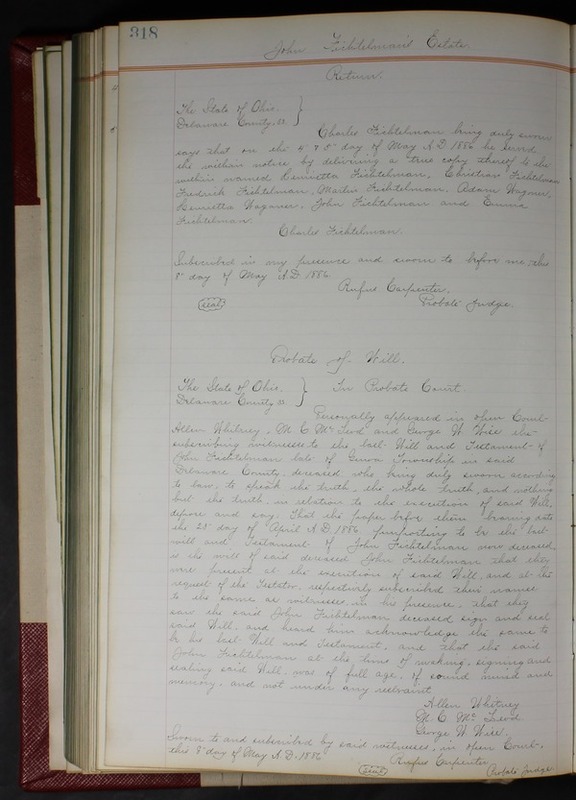 318
John Fichtelman's Estate.
Return.
The State of Ohio, }
Delaware County, ss. }
Charles Fichtelman being duly sworn
says that on the 4" & 5" day of May A.D. 1886 he served
the within notice by delivering a true copy thereof to the
within named Henrietta Fichtelman, Christian Fichtelman
Fredrick Fichtelman, Martin Fichtelman, Adam Wagner,
Henrietta Wagoner, John Fichtelman and Emma
Fichtelman.
Charles Fichtelman.
Subscribed in my presence and sworn to before me, this
8" day of May A.D. 1886.
Rufus Carpenter,
(seal) Probate Judge.
Probate of Will.
The State of Ohio, } In Probate Court.
Delaware County ss. }
Personally appeared in open Court
Allen Whitney, M. C. Mc and George W. Wise the
subscribing witnesses to the last Will and Testament of
John Fichtelman late of Genoa Township in said
Delaware County, deceased, who being duly sworn according
to law, to speak the truth, the whole truth, and nothing
but the truth, in relation to the execution of said Will,
depose and say, That the paper before them bearing date
the 23" day of April A.D. 1886, purporting to be the last
will and Testament of John Fichtelman now deceased,
is the will of said deceased John Fichtelman that they
were present at the execution of said Will, and at the
request of the Testator, respectively subscribed their names
to the same as witnesses, in his presence, that they
saw the said John Fichtelman, deceased sign and seal
said Will, and heard him acknowledge the same to
be his last Will and Testament, and that the said
John Fichtelman at the time of making, signing and
sealing said Will, was of full age, of sound mind and
memory, and not under any restraint.
Allen Whitney
M. C. Mc
George W. Wise.
Sworn to and subscribed by said witnesses, in open Court.
this 8" day of May A.D. 1886 Rufus Carpenter
(seal) Probate Judge